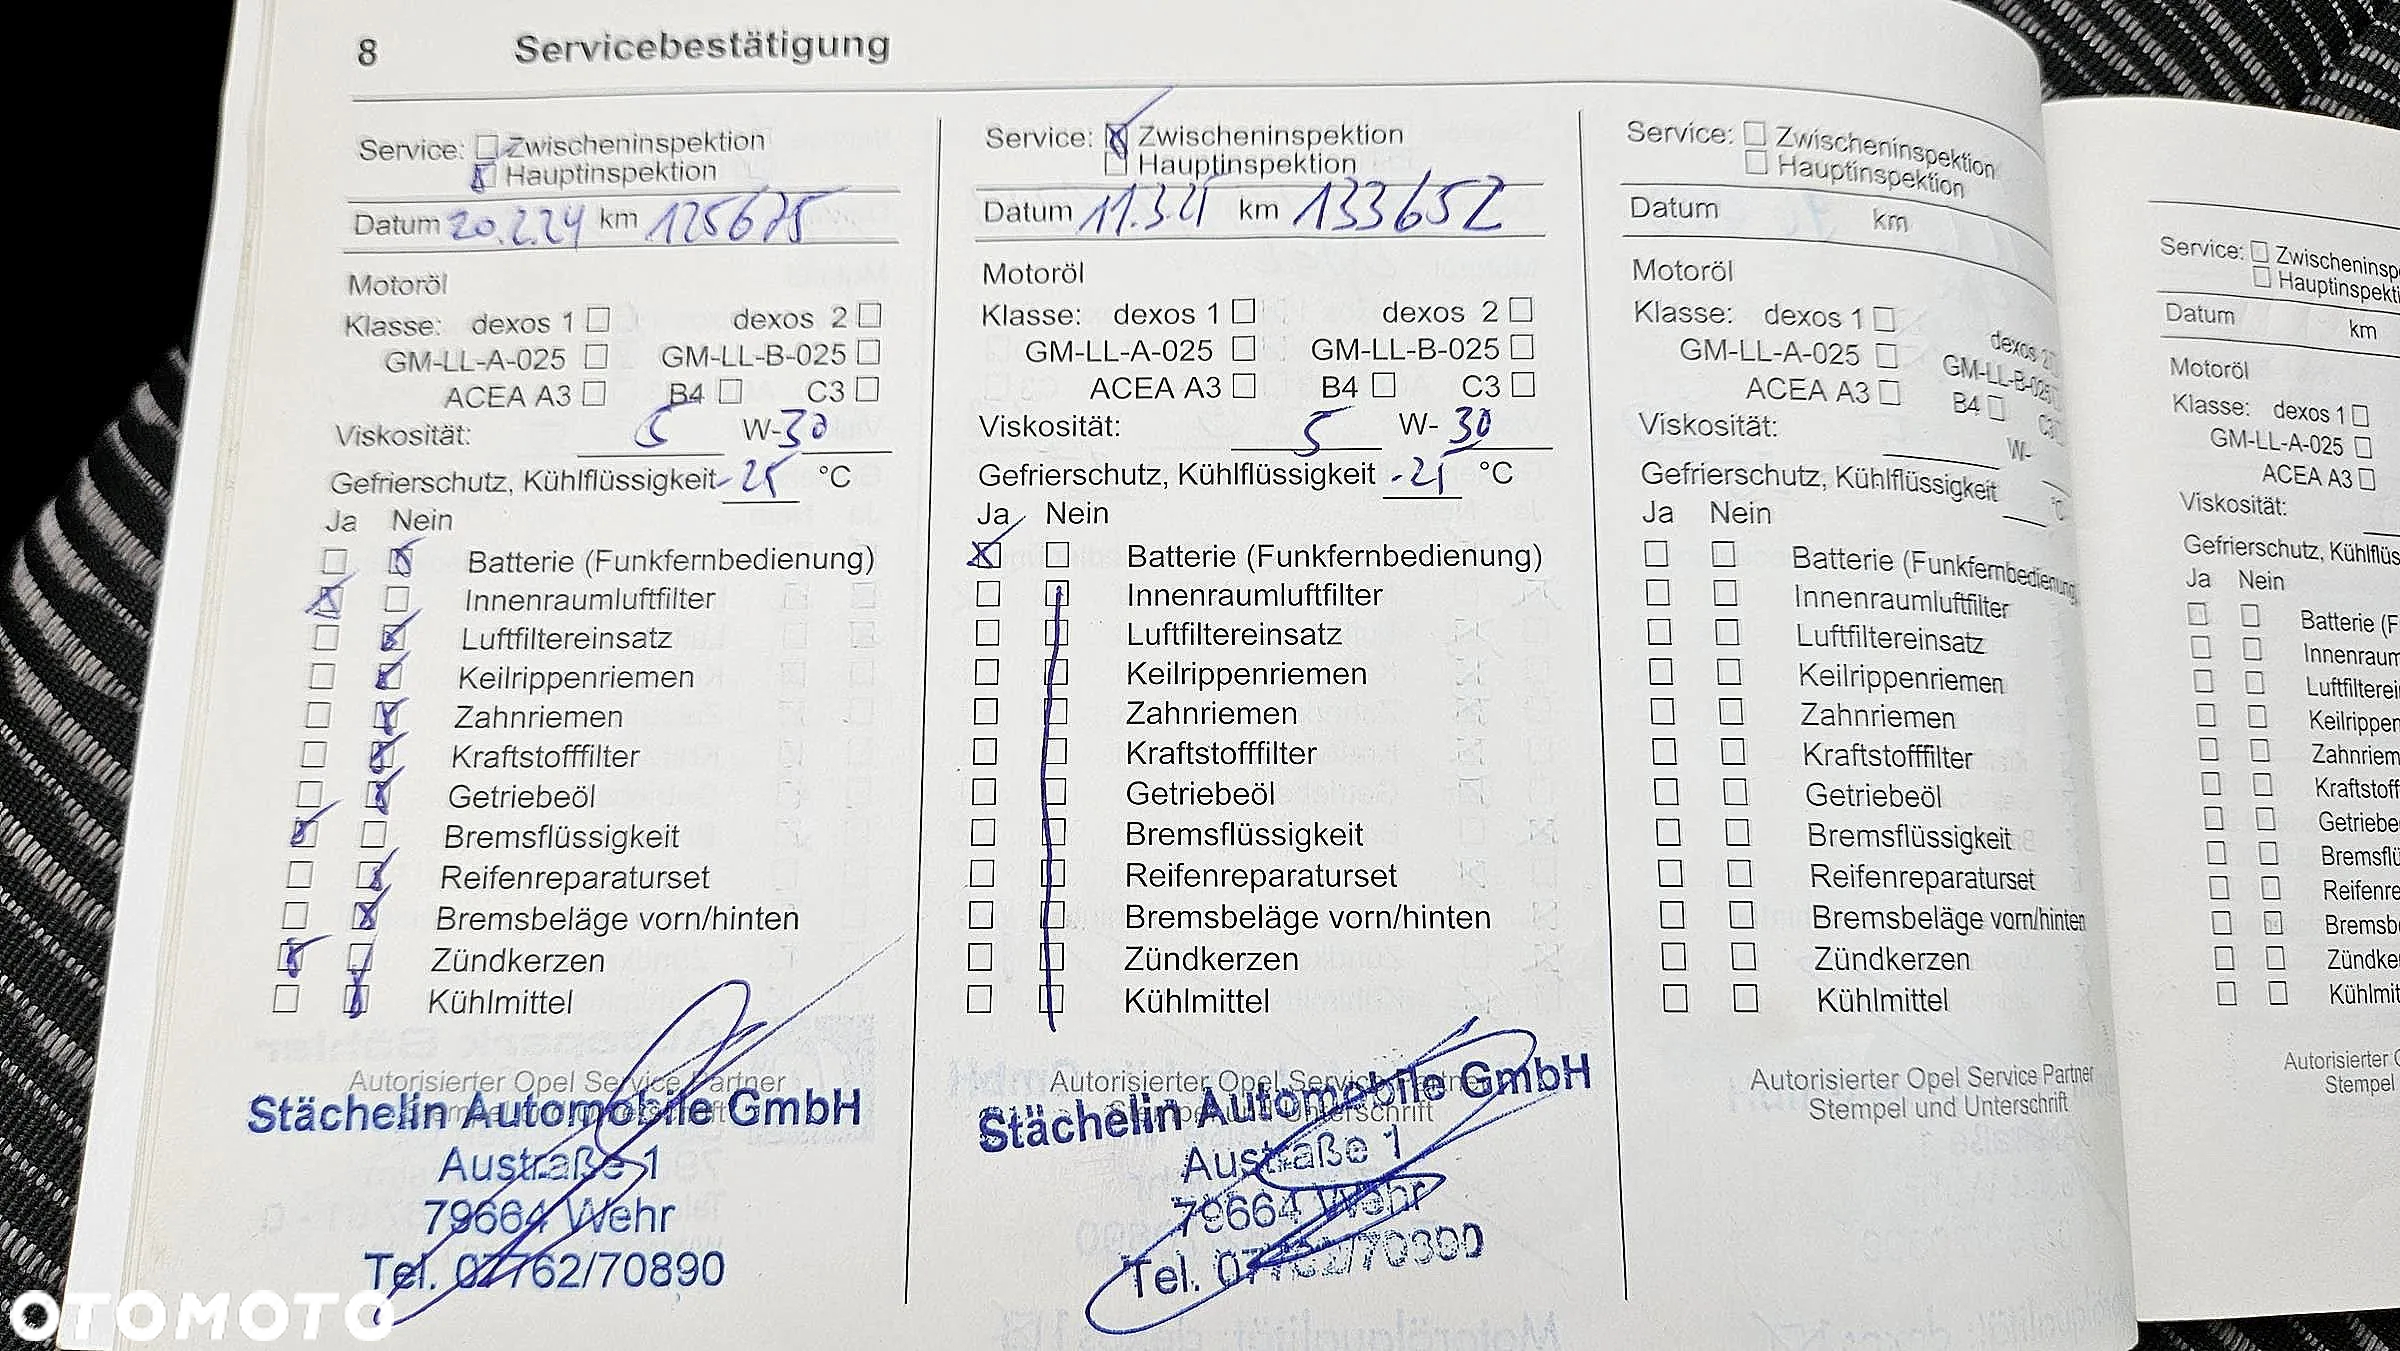 8 Servicebestätigung
Service: Zwischeninspektion
Hauptinspektion
Datum 20.2.24 km 125675
Motoröl
Klasse: dexos 1 dexos 2
GM-LL-A-025 GM-LL-B-025
ACEA A3 B4 C3
Viskosität: 5 W-30
Gefrierschutz, Kühlflüssigkeit -25 °C
Ja Nein
Batterie (Funkfernbedienung)
Innenraumluftfilter
Luftfiltereinsatz
Keilrippenriemen
Zahnriemen
Kraftstofffilter
Getriebeöl
Bremsflüssigkeit
Reifenreparaturset
Bremsbeläge vorn/hinten
Zündkerzen
Kühlmittel
Autorisierter Opel Service Partner
Stächelin Automobile GmbH
Austraße 1
79664 Wehr
Tel. 07762/70890
Service: Zwischeninspektion
Hauptinspektion
Datum km 133652
Motoröl
Klasse: dexos 1 dexos 2
GM-LL-A-025 GM-LL-B-025
ACEA A3 B4 C3
Viskosität: 5 W-30
Gefrierschutz, Kühlflüssigkeit °C
Ja Nein
Batterie (Funkfernbedienung)
Innenraumluftfilter
Luftfiltereinsatz
Keilrippenriemen
Zahnriemen
Kraftstofffilter
Getriebeöl
Bremsflüssigkeit
Reifenreparaturset
Bremsbeläge vorn/hinten
Zündkerzen
Kühlmittel
Autorisierter Opel Service Partner
Stempel und Unterschrift
Stächelin Automobile GmbH
Austraße 1
79664 Wehr
Tel. 07762/70890
Service: Zwischeninspektion
Hauptinspektion
Datum km
Motoröl
Klasse: dexos 1 dexos 2
GM-LL-A-025 GM-LL-B-025
ACEA A3 B4 C3
Viskosität: W-
Gefrierschutz, Kühlflüssigkeit °C
Ja Nein
Batterie (Funkfernbedienung
Innenraumluftfilter
Luftfiltereinsatz
Keilrippenriemen
Zahnriemen
Kraftstofffilter
Getriebeöl
Bremsflüssigkeit
Reifenreparaturset
Bremsbeläge vorn/hinten
Zündkerzen
Kühlmittel
Autorisierter Opel Service Partner
Stempel und Unterschrift
Service: Zwischeninsp
Hauptinspekti
Datum km
Motoröl
Klasse: dexos 1
GM-LL-A-025
ACEA A3
Viskosität:
Gefrierschutz, Kühlflüs
Ja Nein
Batterie (F
Innenraum
Luftfilterei
Keilrippen
Zahnriem
Kraftstoff
Getriebe
Bremsflü
Reifenre
Bremsb
Zündke
Kühlmit
Autorisierter
Stempel
OTOMOTO